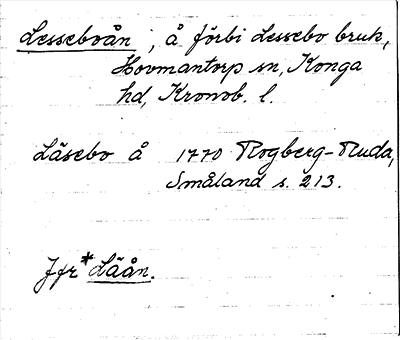 Lesseboån, å förbi Lessebo bruk,
Hovmantorp sn, Konga
hd, Kronob. l.
Läsebo å 1770 Rogberg-Ruda,
Småland s. 213.
Jfr *Läån.